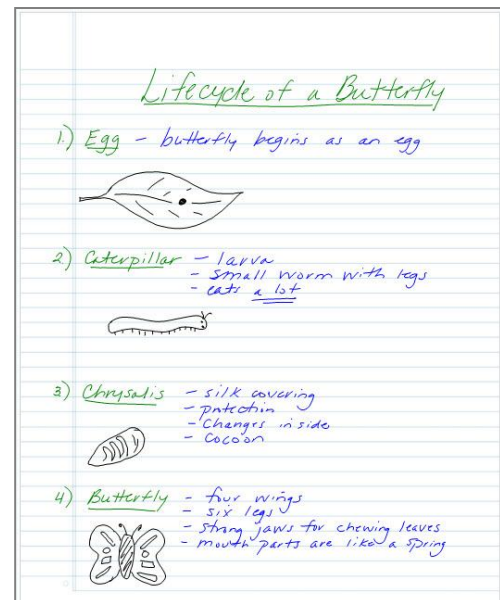 Lifecycle of a Butterfly
1.) Egg - butterfly begins as an egg
2.) Caterpillar - larva
- small worm with legs
- eats a lot
3) Chrysalis - silk covering
- protection
- Changes inside
- Cocoon
4) Butterfly - four wings
- six legs
- strong jaws for chewing leaves
- mouth parts are like a spring